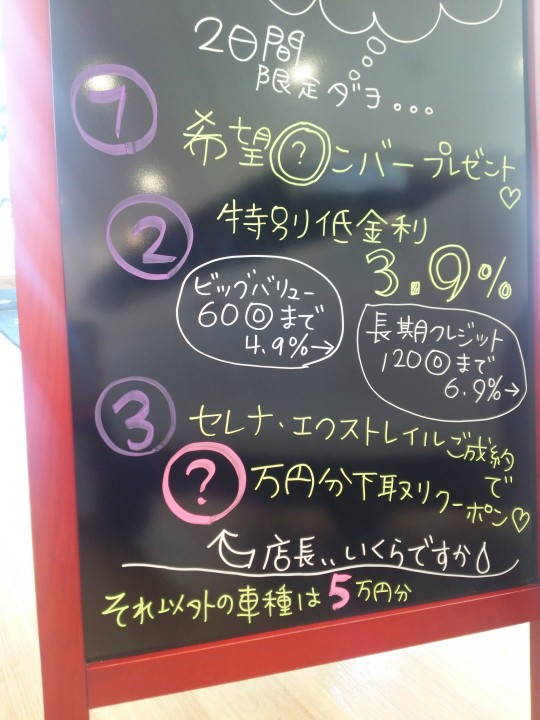 2日間
限定ダヨ...
1
希望?ンバープレゼント♡
2
特別低金利
3.9%
ビッグバリュー
60回まで
4.9%→
長期クレジット
120回まで
6.9%→
3
セレナ・エクストレイルご成約で
?万円分下取りクーポン♡
店長、、いくらですか
それ以外の車種は5万円分